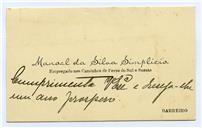 Manoel da Silva Simplicio
Empregado nos Caminhos de Ferro do Sul e Sueste
Cumprimenta V. Exª e deseja-lhe
um ano prospero.
BARREIRO